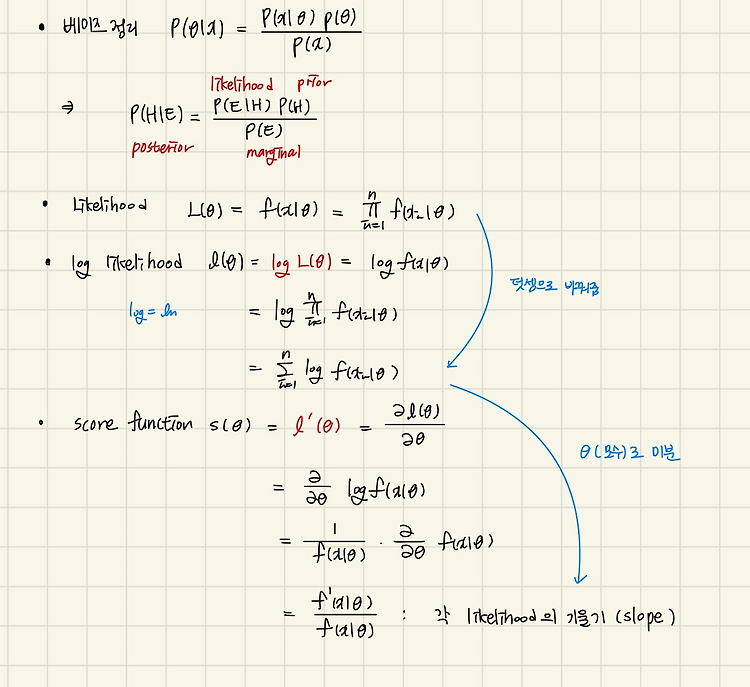 • 베이즈 정리 P(θ|x) = P(x|θ) p(θ) / P(x)
likelihood prior
⇒ P(H|E) = P(E|H) P(H) / P(E)
posterior marginal
• Likelihood L(θ) = f(x|θ) = ∏_{i=1}^{n} f(x_i|θ)
• log likelihood l(θ) = log L(θ) = log f(x|θ)
덧셈으로 바꿔줌
log = ln = log ∏_{i=1}^{n} f(x_i|θ)
= ∑_{i=1}^{n} log f(x_i|θ)
• score function s(θ) = l'(θ) = ∂l(θ) / ∂θ
θ(모수)로 미분
= ∂/∂θ log f(x|θ)
= 1 / f(x|θ) · ∂/∂θ f(x|θ)
= f'(x|θ) / f(x|θ) : 각 likelihood의 기울기 (slope)